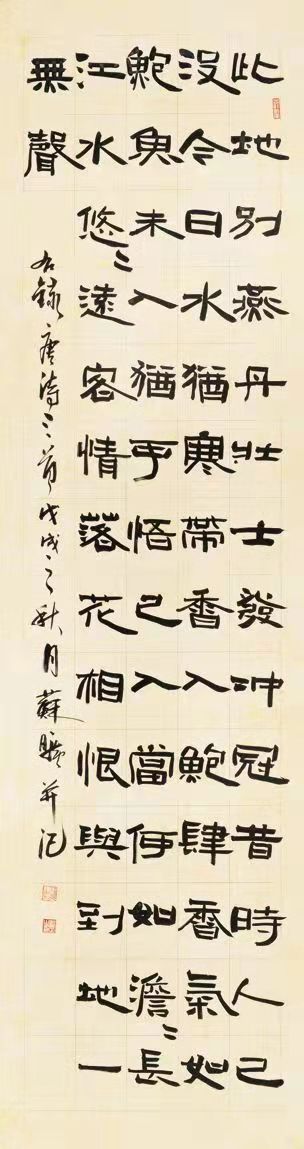 此地別燕丹壯士發沖冠昔時人已
沒今日水猶寒帶香入鮑肆香氣如
鮑魚未入猶可悟已入當何如澹〻長
江水悠〻遠客情落花相恨與到地一
無聲
右錄唐詩三首戊戌之秋月蘇并記